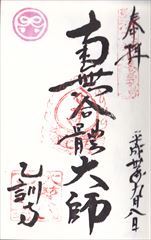 奉拝
平成廿五年九月八日
南無合體大師
乙訓寺